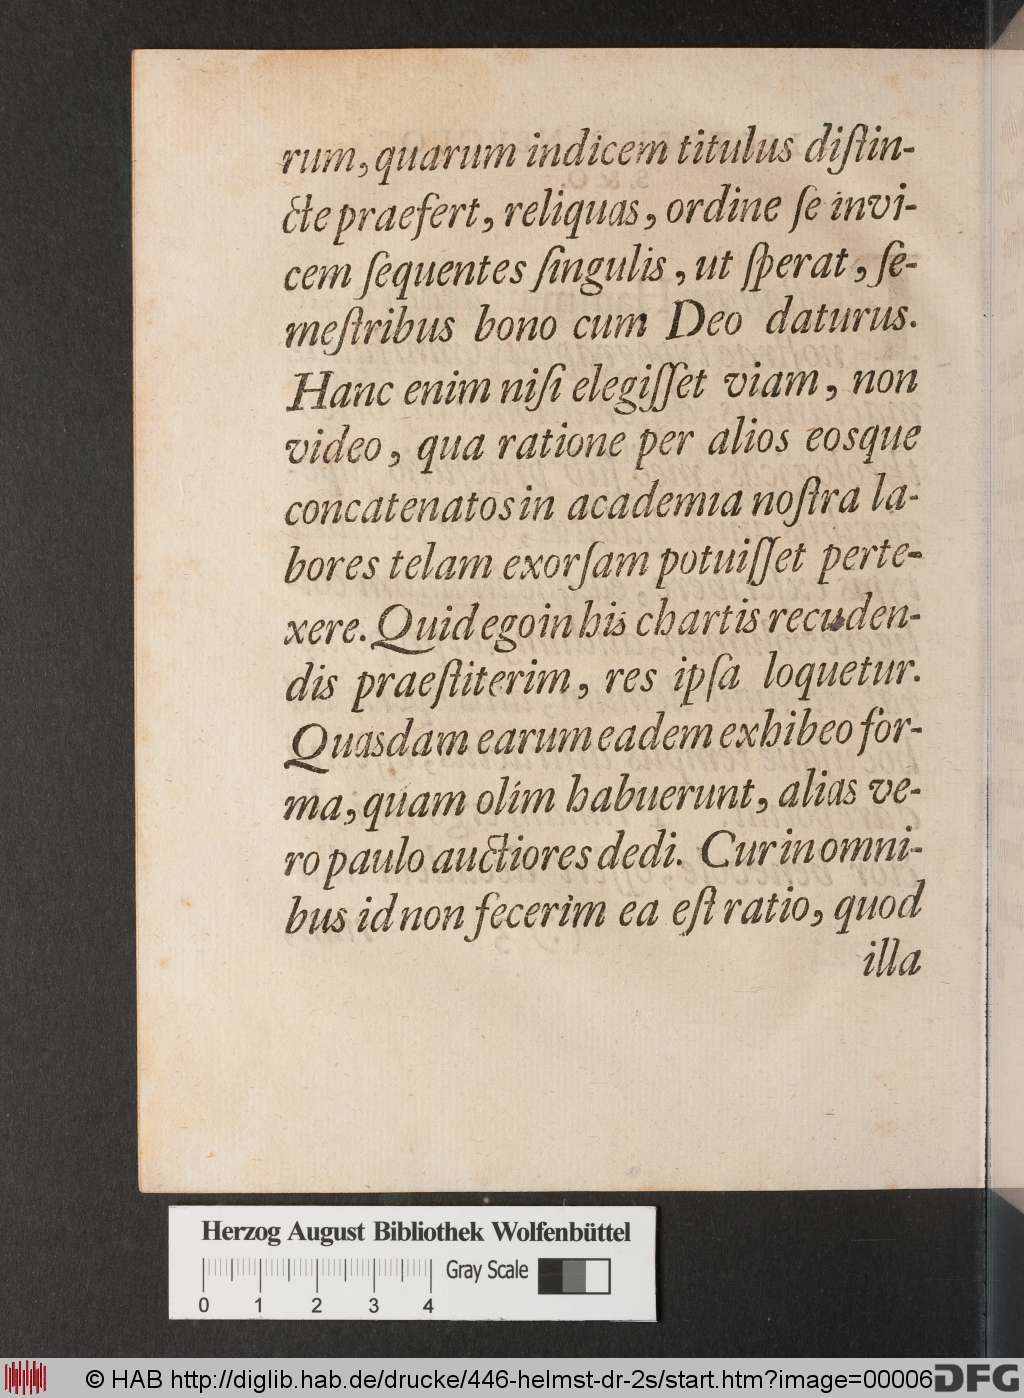 rum, quarum indicem titulus diſtin-
cte praefert, reliquas, ordine ſe invi-
cem ſequentes ſingulis, ut ſperat, ſe-
meſtribus bono cum Deo daturus.
Hanc enim niſi elegiſſet viam, non
video, qua ratione per alios eosque
concatenatos in academia noſtra la-
bores telam exorſam potuiſſet perte-
xere. Quid ego in his chartis recuden-
dis praeſtiterim, res ipſa loquetur.
Quasdam earum eadem exhibeo for-
ma, quam olim habuerunt, alias ve-
ro paulo auctiores dedi. Cur in omni-
bus id non fecerim ea eſt ratio, quod
illa
Herzog August Bibliothek Wolfenbüttel
Gray Scale
0 1 2 3 4
© HAB http://diglib.hab.de/drucke/446-helmst-dr-2s/start.htm?image=00006
DFG